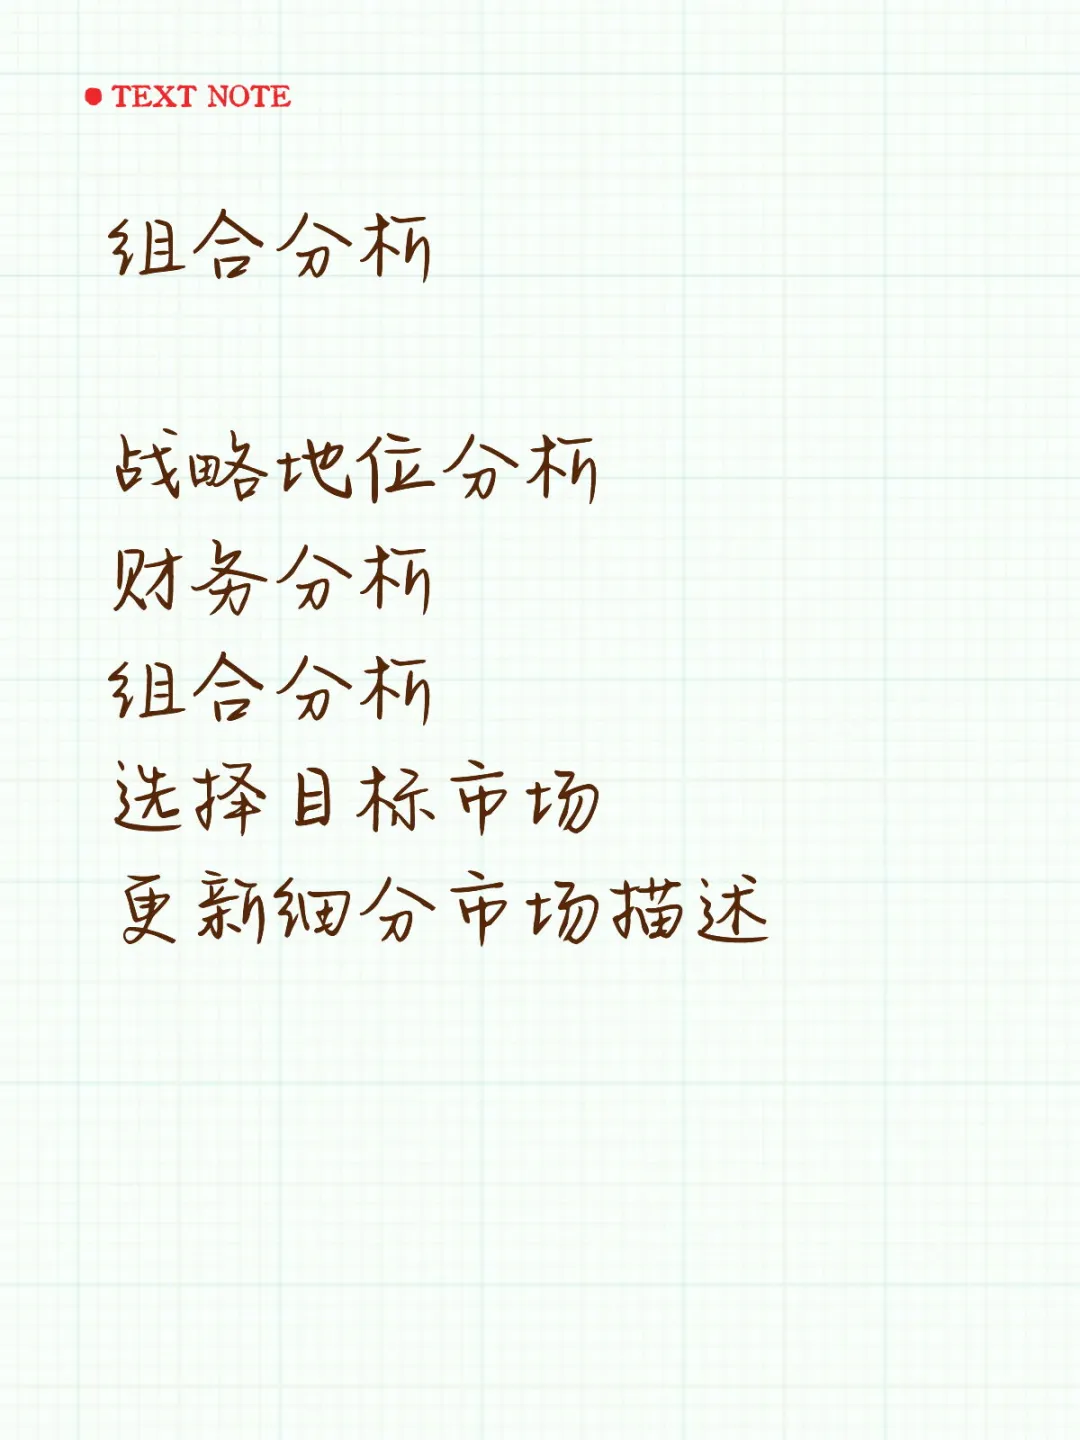 TEXT NOTE
组合分析
战略地位分析
财务分析
组合分析
选择目标市场
更新细分市场描述